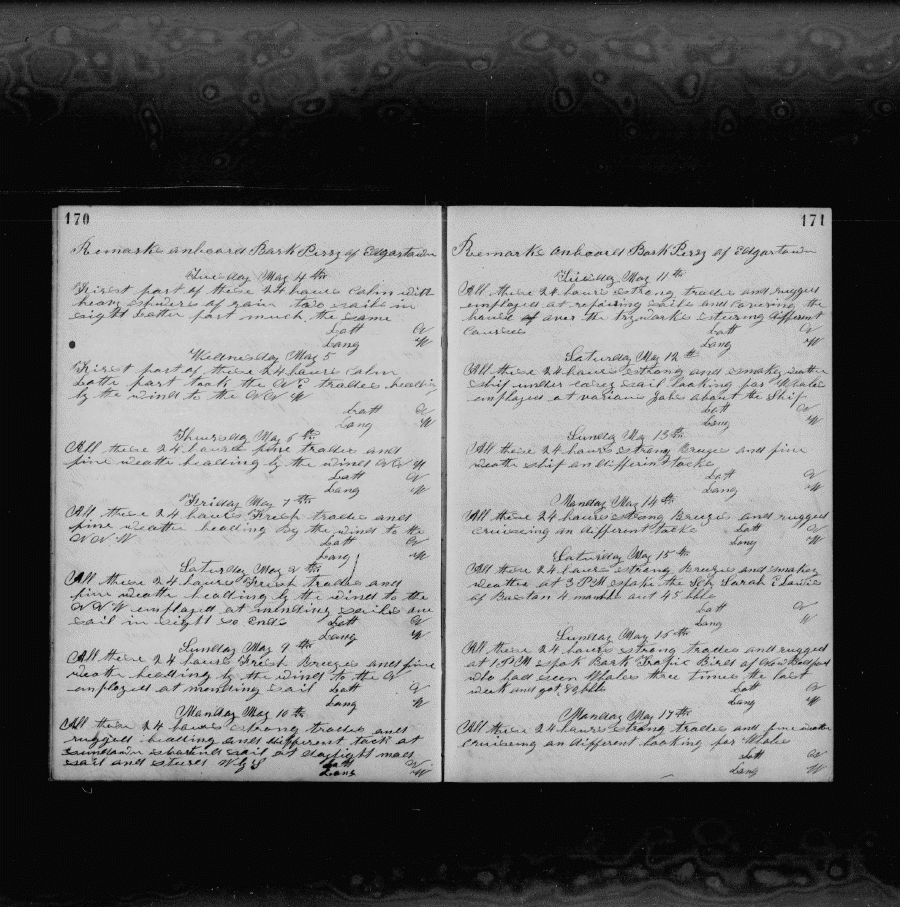 170
Remarks onboard Bark Perry of Edgartown
Tuesday May 4th
Firest part of these 24 hours Calm with
heavy of rain two sails in
sight Latter part much the same
Latt N
Long W
Wednesday May 5
Firest part of these 24 hours calm
Latte part took the N E trades heading
by the wind to the N N W
Latt N
Long W
Thursday May 6th
All these 24 hours fine trades and
fine weathe headling by the wind N N W
Latt N
Long W
Friday May 7th
All these 24 hours Fresh trades and
fine weathe heading by the wind to the
N N W Latt N
Long W
Saturday May 8th
All these 24 hours Fresh trades and
fine weathe headling by the wind to the
N N W employed at mending sails one
sail in sight so Ends Latt N
Long W
Sunday May 9th
All these 24 hours Fresh Breezes and fine
weathe headling by the wind to the N
employed at mending sail Latt N
Long W
Monday May 10th
All these 24 hours strong trades and
rugged heading and different tack at
sundown shortend sail at daylight mad
sail and stured W by S Latt N
Long W
171
Remarks onboard Bark Perry of Edgartown
Tuesday May 11th
All these 24 hours strong trades and rugged
employed at repairing sails and Covering the
house over the tryworks steering different
Courses Latt N
Long W
Saturday May 12th
All these 24 hours strong and smokey
ship under easey sail looking for Whales
employed at various Jobs about the Ship
Latt N
Long W
Sunday May 13th
All these 24 hours strong Breezes and fine
weathe ship on differint tacks
Latt N
Long W
Monday May 14th
All these 24 hours strong Breezes and rugged
cruiseing on different tacks Latt N
Long W
Saturday May 15th
All these 24 hours strong Breezes and smokey
weather at 3 PM spoke the Sch Sarah E Lewis
of Boston 4 months out 45 bbls
Latt N
Long W
Sunday May 16th
All these 24 hours strong trades and rugged
at 1 PM spok Bark Tropic Bird of New Bedford
who had seen Whales three times the last
week and got 80 bbls Latt N
Long W
Monday May 17th
All these 24 hours strong trades and fine
cruiseing on different looking for Whales
Latt N
Long W